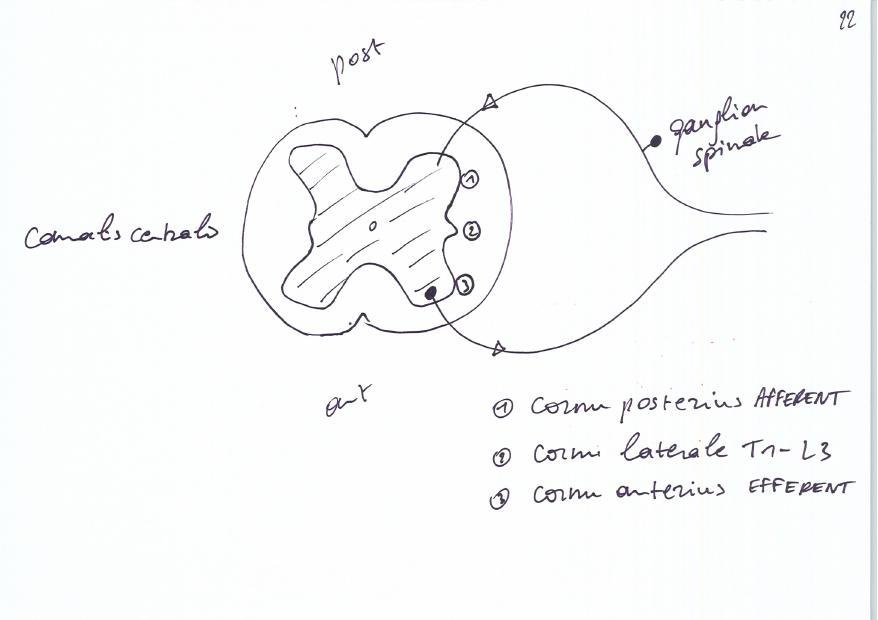 22
post
ganglion
spinale
Canalis centralis
1
2
3
ant
1 Cornu posterius AFFERENT
2 Cornu laterale T1-L3
3 Cornu anterius EFFERENT